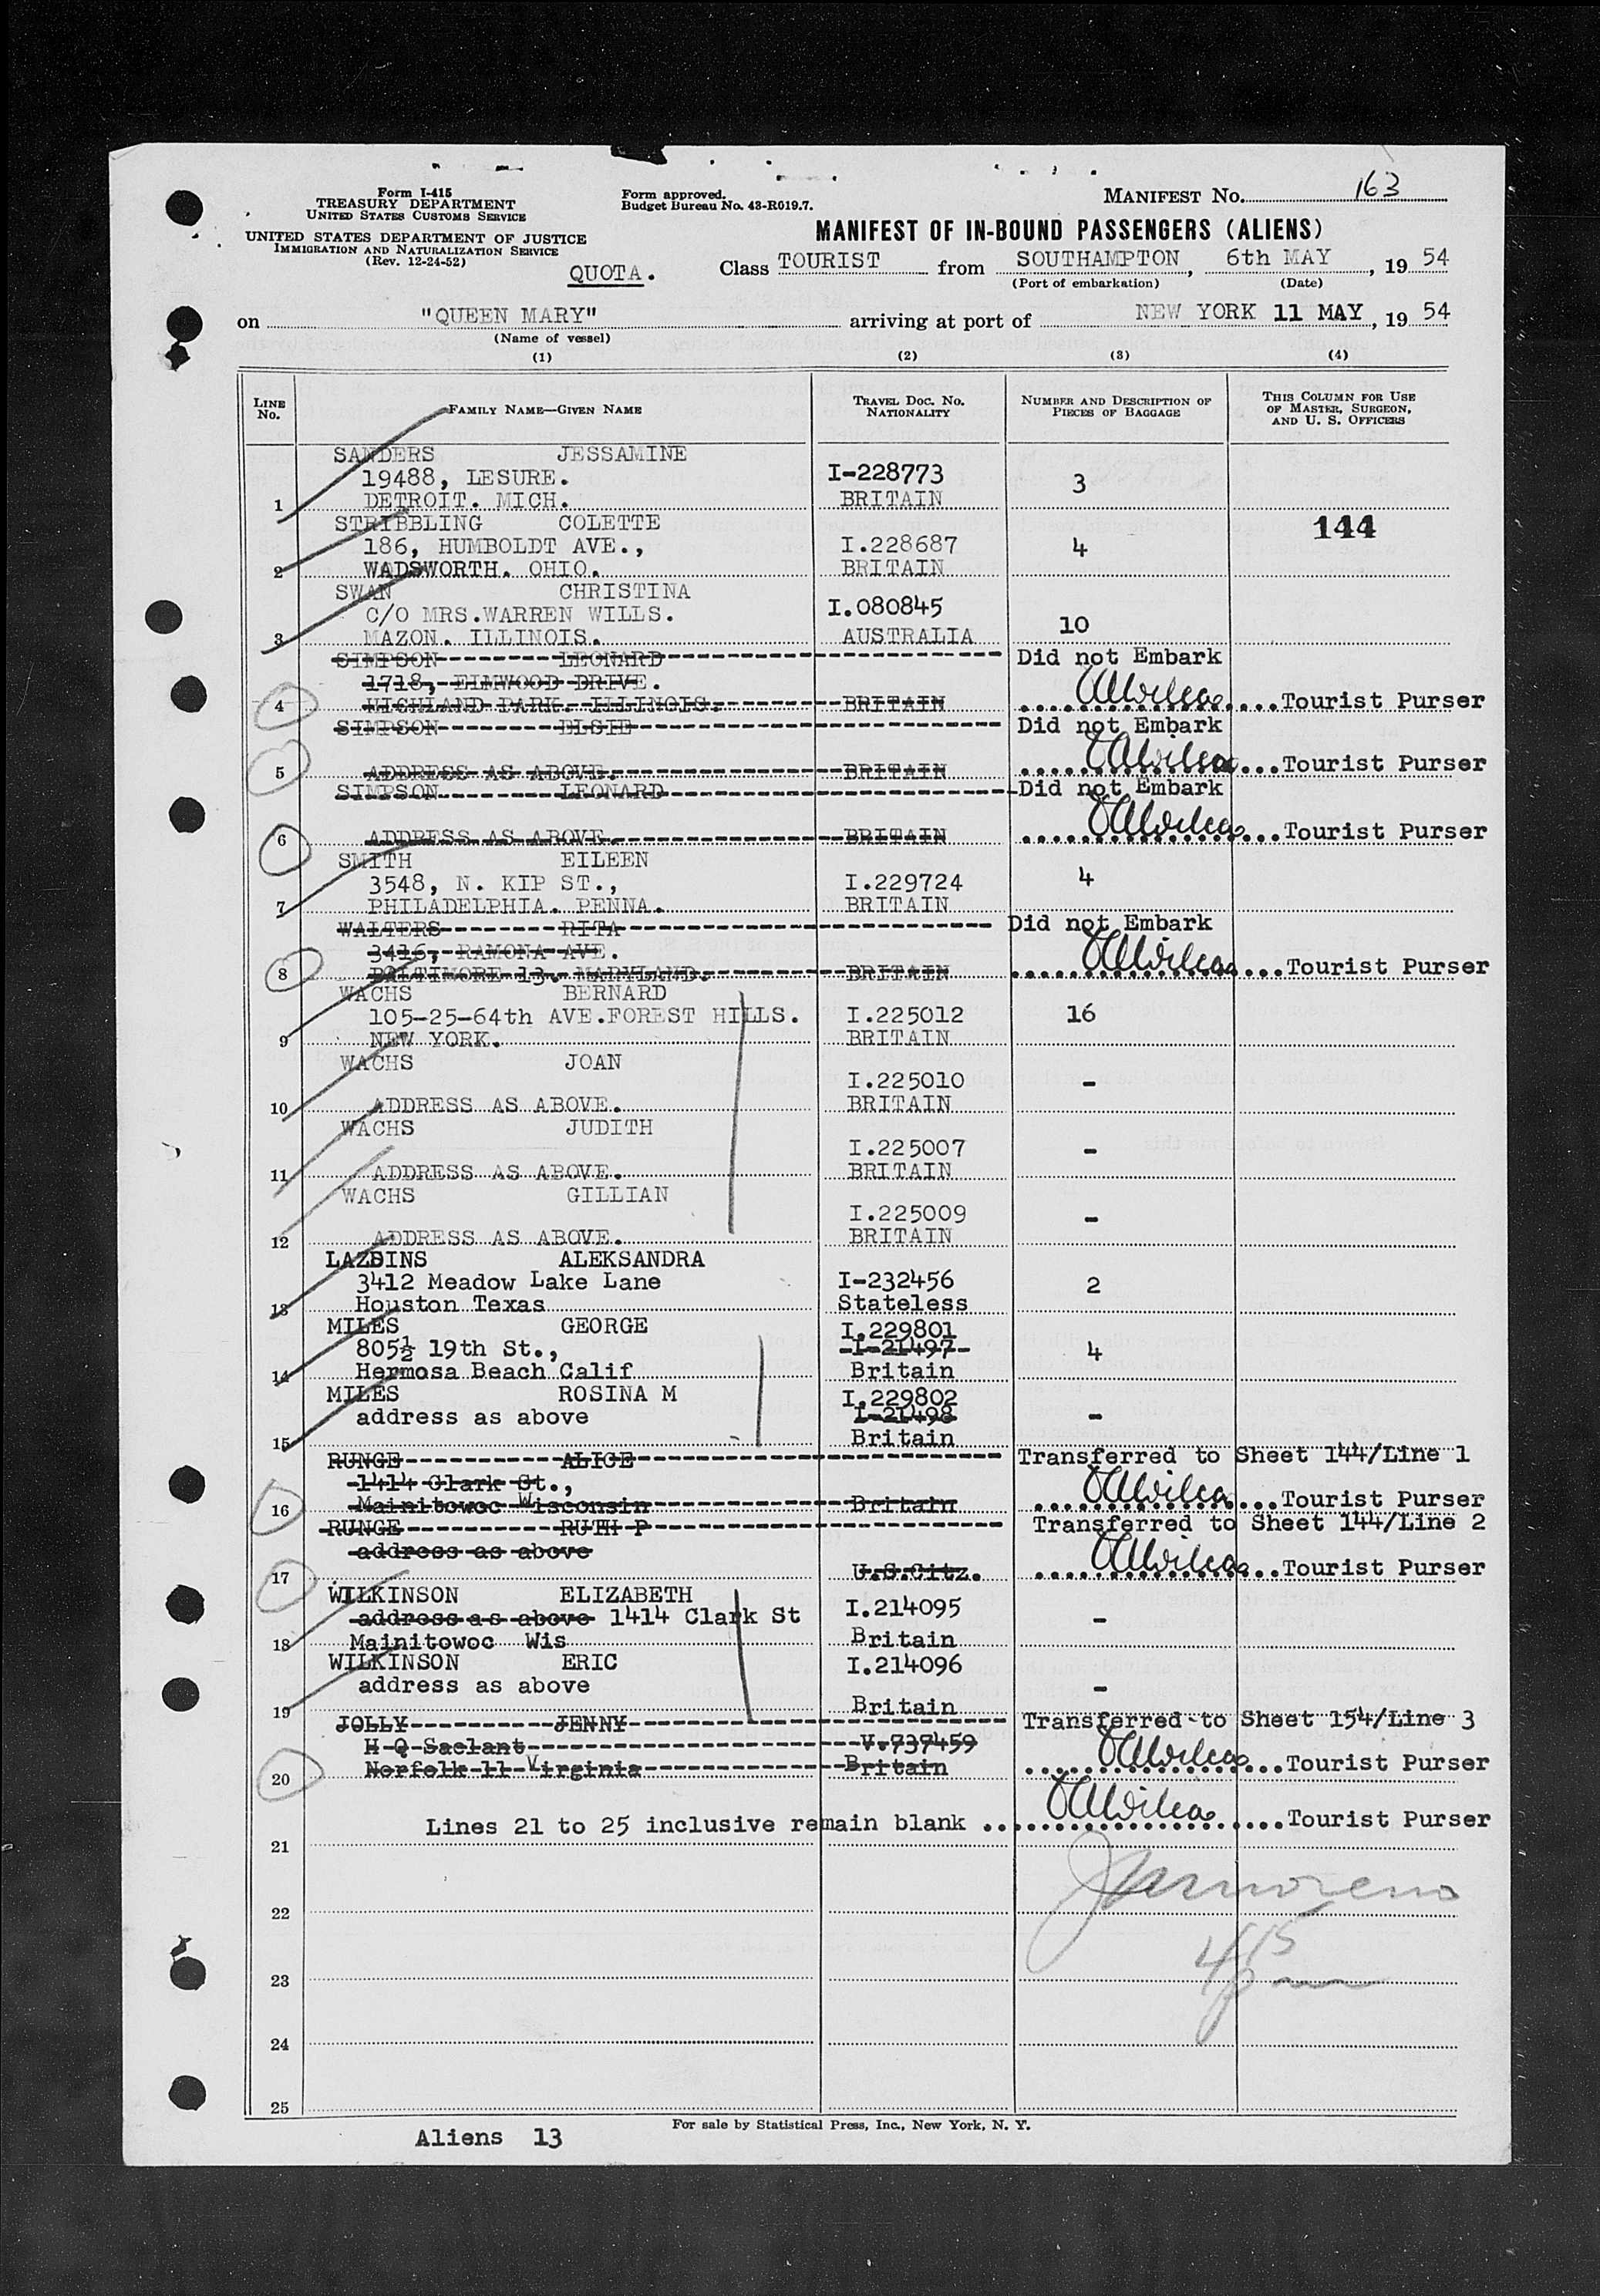 Form I-415
TREASURY DEPARTMENT
UNITED STATES CUSTOMS SERVICE
UNITED STATES DEPARTMENT OF JUSTICE
IMMIGRATION AND NATURALIZATION SERVICE
(Rev. 12-24-52)
QUOTA.
Form approved.
Budget Bureau No. 43-R019.7.
MANIFEST No. 163
MANIFEST OF IN-BOUND PASSENGERS (ALIENS)
Class TOURIST from SOUTHAMPTON, 6th MAY, 19 54
(Port of embarkation) (Date)
on "QUEEN MARY" arriving at port of NEW YORK 11 MAY, 19 54
(Name of vessel)
(1) (2) (3) (4)
LINE No. FAMILY NAME—GIVEN NAME TRAVEL DOC. No. NATIONALITY NUMBER AND DESCRIPTION OF PIECES OF BAGGAGE THIS COLUMN FOR USE OF MASTER, SURGEON, AND U. S. OFFICERS
SANDERS JESSAMINE
19488, LESURE. I-228773 3
1 DETROIT. MICH. BRITAIN
STRIBBLING COLETTE 144
186, HUMBOLDT AVE., I.228687 4
2 WADSWORTH. OHIO. BRITAIN
SWAN CHRISTINA
C/O MRS.WARREN WILLS. I.080845 10
3 MAZON. ILLINOIS. AUSTRALIA
SIMPSON LEONARD Did not Embark
1718, ELMWOOD DRIVE.
4 HIGHLAND PARK. ILLINOIS. BRITAIN Tourist Purser
SIMPSON ELSIE Did not Embark
5 ADDRESS AS ABOVE. BRITAIN Tourist Purser
SIMPSON LEONARD Did not Embark
6 ADDRESS AS ABOVE. BRITAIN Tourist Purser
SMITH EILEEN
3548, N. KIP ST., I.229724 4
7 PHILADELPHIA. PENNA. BRITAIN
WALTERS RITA Did not Embark
3416, RAMONA AVE.
8 BALTIMORE 13. MARYLAND. BRITAIN Tourist Purser
WACHS BERNARD
105-25-64th AVE.FOREST HILLS. I.225012 16
9 NEW YORK. BRITAIN
WACHS JOAN
I.225010 -
10 ADDRESS AS ABOVE. BRITAIN
WACHS JUDITH
I.225007 -
11 ADDRESS AS ABOVE. BRITAIN
WACHS GILLIAN
I.225009 -
12 ADDRESS AS ABOVE. BRITAIN
LAZDINS ALEKSANDRA
3412 Meadow Lake Lane I-232456 2
13 Houston Texas Stateless
MILES GEORGE I.229801
805½ 19th St., I-21497 4
14 Hermosa Beach Calif Britain
MILES ROSINA M I.229802
address as above I-21498 -
15 Britain
RUNGE ALICE Transferred to Sheet 144/Line 1
1414 Clark St.,
16 Mainitowoc Wisconsin Britain Tourist Purser
RUNGE RUTH P Transferred to Sheet 144/Line 2
address as above
17 U.S.Citz. Tourist Purser
WILKINSON ELIZABETH I.214095
address as above 1414 Clark St -
18 Mainitowoc Wis Britain
WILKINSON ERIC I.214096
address as above -
19 Britain
JOLLY JENNY Transferred to Sheet 154/Line 3
H Q Saclant V.737459
20 Norfolk 11 Virginia Britain Tourist Purser
Lines 21 to 25 inclusive remain blank Tourist Purser
21
22
415
23 pm
24
25
For sale by Statistical Press, Inc., New York, N. Y.
Aliens 13